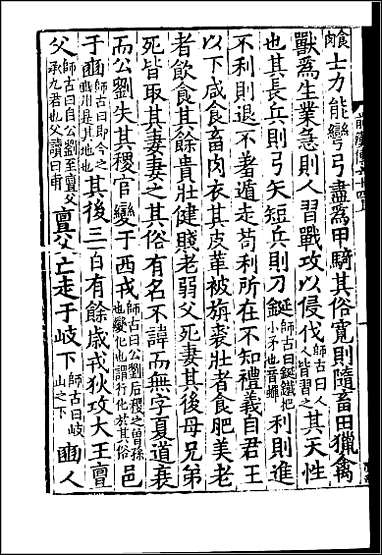 食肉士力能彎弓盡為甲騎其俗寬則隨畜田獵禽
獸為生業急則人習戰攻以侵伐師古曰人人皆習之其天性
也其長兵則弓矢短兵則刀鋋師古曰鋋鐵把小矛也音蟬利則進
不利則退不羞遁走苟利所在不知禮義自君王
以下咸食畜肉衣其皮革被旃裘壯者食肥美老
者飲食其餘貴壯健賤老弱父死妻其後母兄弟
死皆取其妻妻之其俗有名不諱而無字夏道衰
而公劉失其稷官變于西戎師古曰公劉后稷之曾孫也變化也謂行化於其俗邑
于豳師古曰即今之豳州是其地也其後三百有餘歲戎狄攻大王亶
父師古曰自公劉至亶父承九君也父讀曰甫亶父亡走于岐下師古曰岐山之下豳人